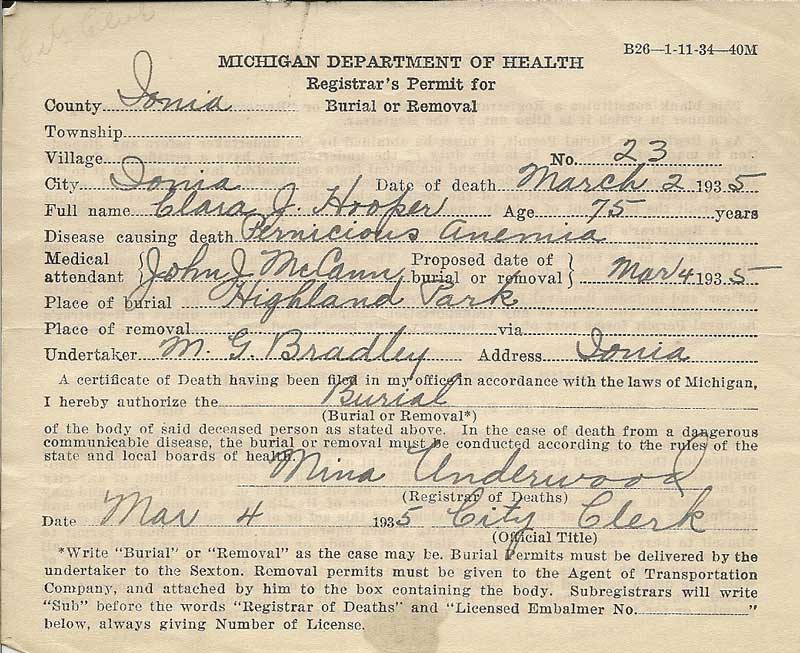 B26—1-11-34—40M
MICHIGAN DEPARTMENT OF HEALTH
Registrar's Permit for
County Ionia Burial or Removal
Township
Village No. 23
City Ionia Date of death March 2 1935
Full name Clara J. Hooper Age 75 years
Disease causing death Pernicious Anemia
Medical attendant } John J. McCann Proposed date of burial or removal } Mar 4 1935
Place of burial Highland Park
Place of removal via
Undertaker M. G. Bradley Address Ionia
A certificate of Death having been filed in my office in accordance with the laws of Michigan,
I hereby authorize the Burial
(Burial or Removal*)
of the body of said deceased person as stated above. In the case of death from a dangerous
communicable disease, the burial or removal must be conducted according to the rules of the
state and local boards of health.
Mina Underwood
(Registrar of Deaths)
Date Mar 4 1935 City Clerk
(Official Title)
*Write "Burial" or "Removal" as the case may be. Burial Permits must be delivered by the
undertaker to the Sexton. Removal permits must be given to the Agent of Transportation
Company, and attached by him to the box containing the body. Subregistrars will write
"Sub" before the words "Registrar of Deaths" and "Licensed Embalmer No. "
below, always giving Number of License.